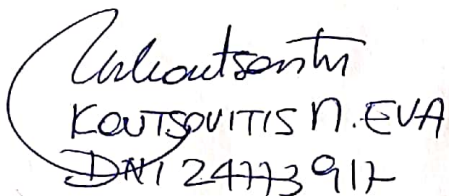 KOUTSOVITIS M. EVA
DNI 24773917